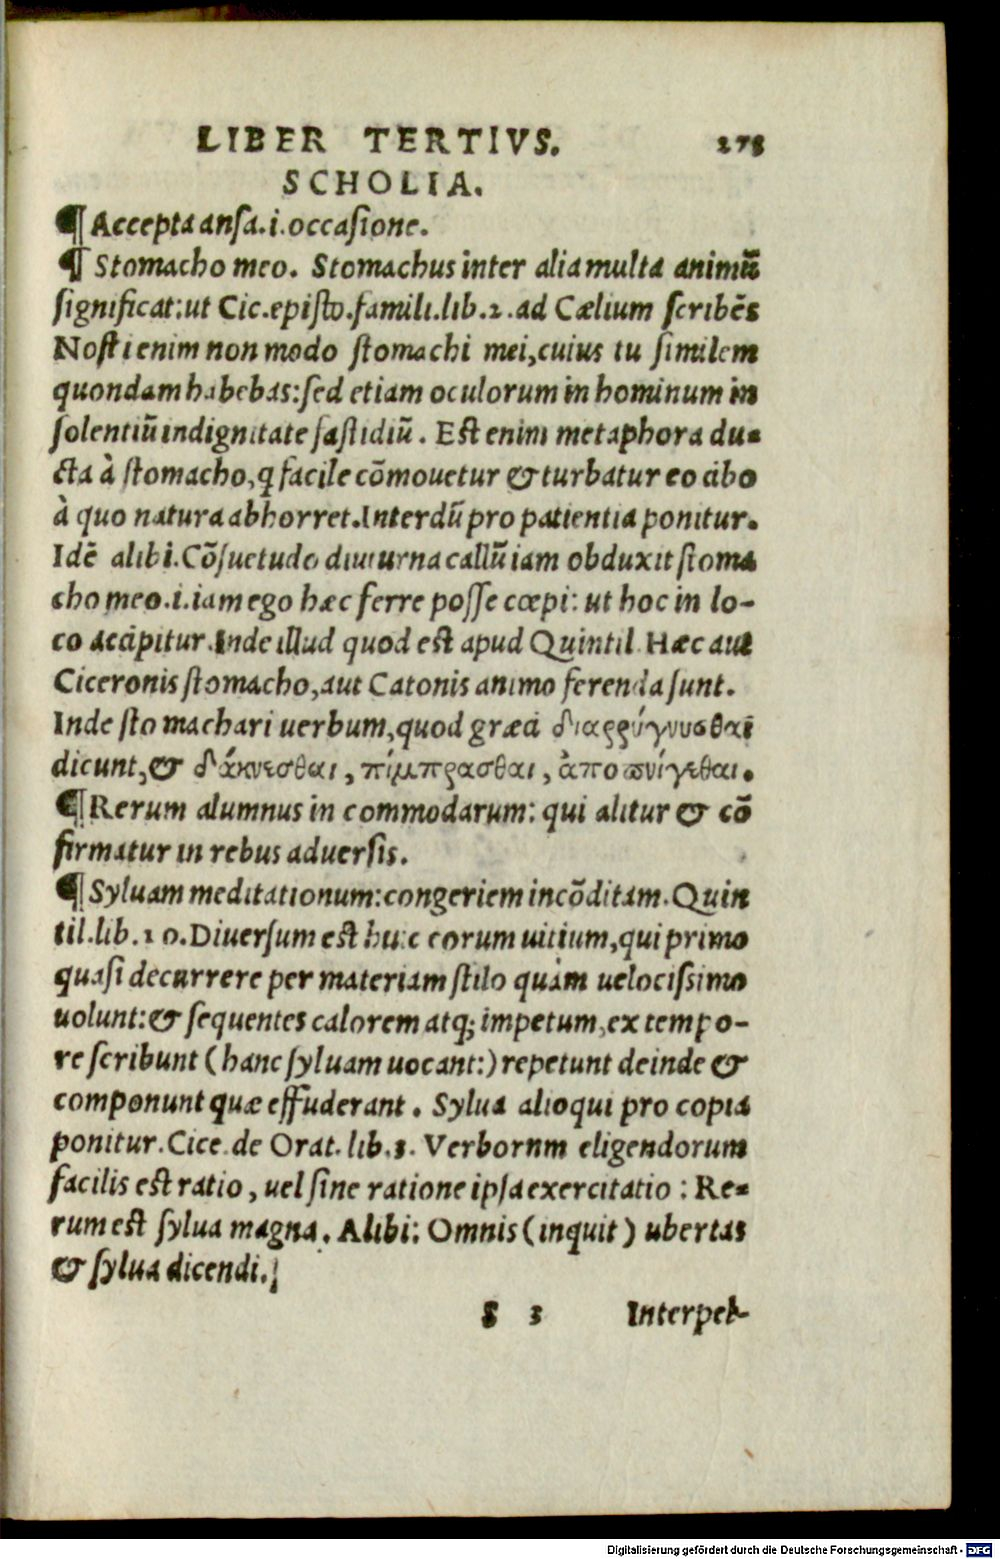 LIBER TERTIVS. 275
SCHOLIA.
¶ Accepta ansa.i.occasione.
¶ Stomacho meo. Stomachus inter alia multa animū
significat:ut Cic.episto.famili.lib.2.ad Cælium scribēs
Nosti enim non modo stomachi mei,cuius tu similem
quondam habebas:sed etiam oculorum in hominum in
solentiū indignitate fastidiū. Est enim metaphora du-
cta à stomacho,q facile cōmouetur & turbatur eo cibo
à quo natura abhorret.Interdū pro patientia ponitur.
Idē alibi.Cōsuetudo diuturna callū iam obduxit stoma
cho meo.i.iam ego hæc ferre posse cœpi: ut hoc in lo-
co accipitur.Inde illud quod est apud Quintil. Hæc aut
Ciceronis stomacho,aut Catonis animo ferenda sunt.
Inde stomachari uerbum,quod græci διαρρύγνυσθαι
dicunt,& δάκνεσθαι, πίμπρασθαι, ἀποπνίγεθαι.
¶ Rerum alumnus in commodarum: qui alitur & cō
firmatur in rebus aduersis.
¶ Syluam meditationum:congeriem incōditam. Quin
til.lib.10.Diuersum est huic eorum uitium,qui primo
quasi decurrere per materiam stilo quàm uelocissimo
uolunt:& sequentes calorem atq; impetum,ex tempo-
re scribunt (hanc syluam uocant:) repetunt deinde &
componunt quæ effuderant. Sylua alioqui pro copia
ponitur.Cice.de Orat.lib.3. Verbornm eligendorum
facilis est ratio, uel sine ratione ipsa exercitatio: Re-
rum est sylua magna. Alibi: Omnis (inquit) ubertas
& sylua dicendi.
S 3 Interpel-
Digitalisierung gefördert durch die Deutsche Forschungsgemeinschaft - DFG